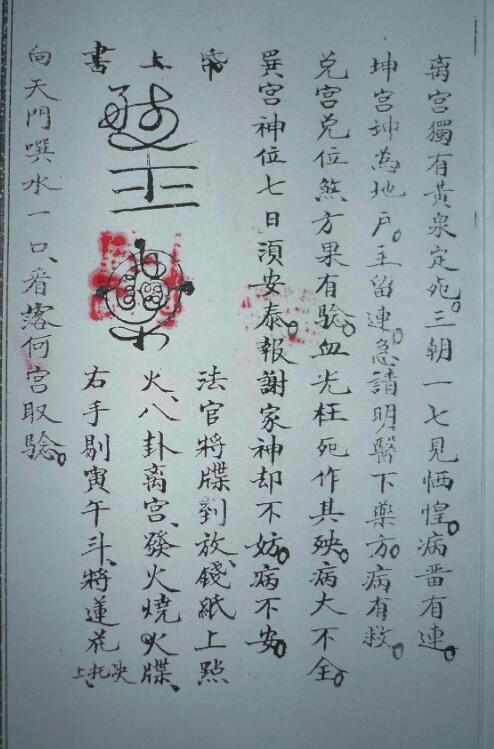 离宫獨有黃泉定死。三朝一七見恓惶。病畨有連。
坤宫坤為地户。主留連。急請明醫下藥方。病有救。
兑宫兑位煞方果有驗。血光枉死作其殃。病大不全。
巽宫神位七日湏安泰。報謝家神却不妨。病不安。
法官將牒到放、錢紙上點
上
火、八卦离宫、發火燒火牒、
書
右手剔寅午斗、將蓮花
上托决
向天門噀水一口、看落何宫取驗。